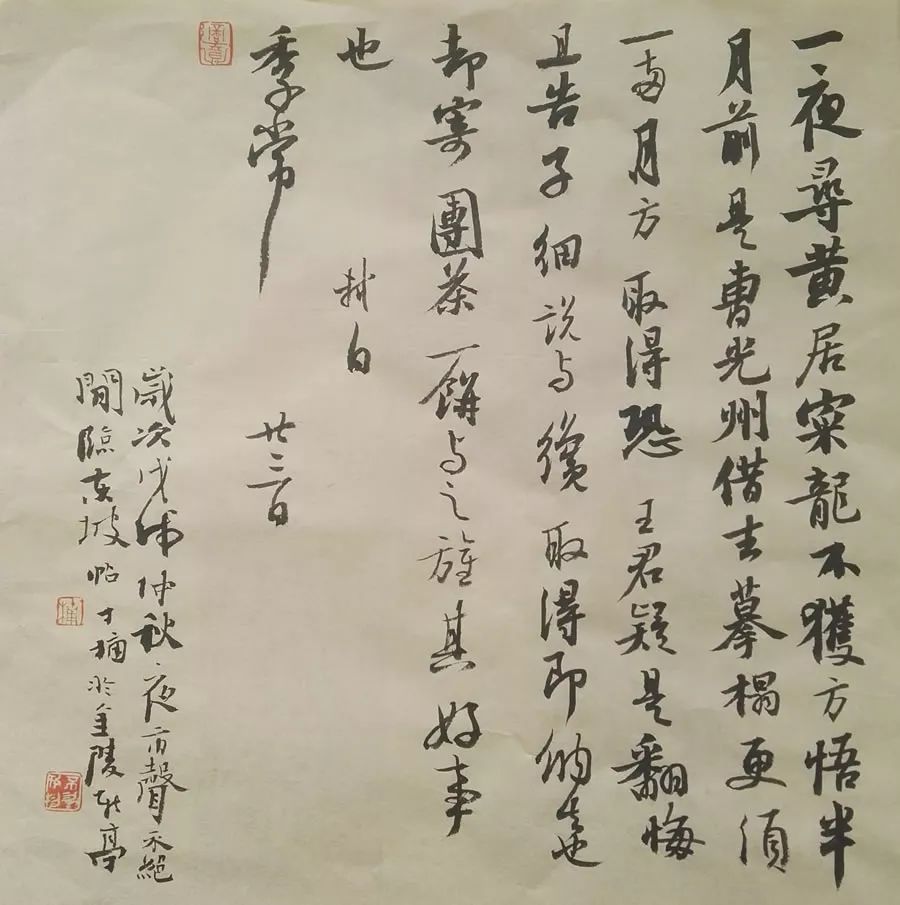 一夜尋黃居寀龍不獲方悟半
月前是曹光州借去摹榻更須
一兩月方取得恐王君疑是翻悔
且告子細說与纔取得即納去也
却寄團茶一餅与之旌其好事
也 軾白
季常 廿三日
歲次戊戌仲秋夜聲不絕
閒臨東坡帖於金陵亭